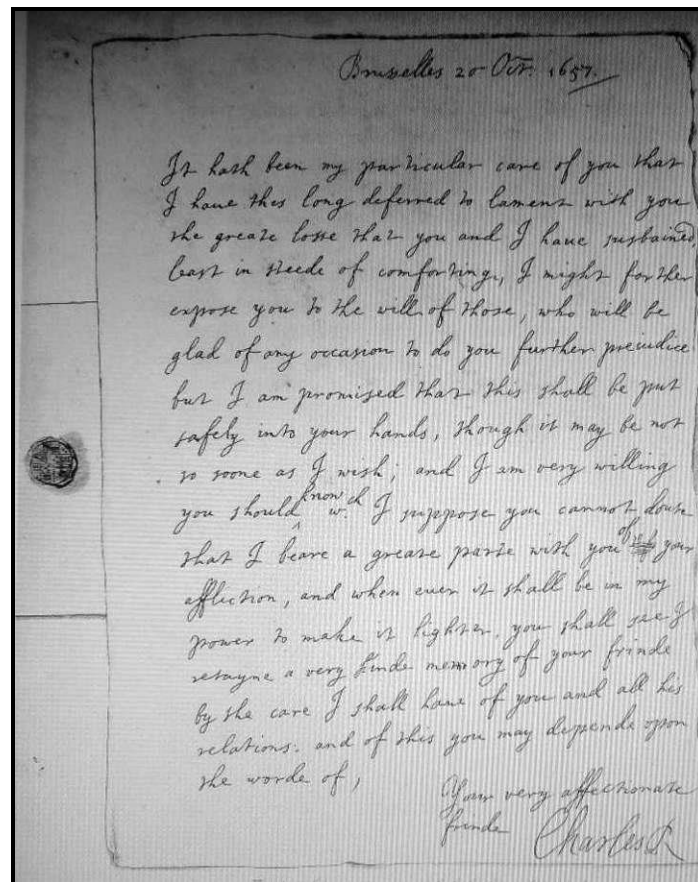 Bruxelles 20 Oct. 1657.
It hath been my particular care of you that
I haue this long deferred to lament with you
the greate losse that you and I haue sustained
least in steede of comforting, I might farther
expose you to the will of those, who will be
glad of any occasion to do you further preiudice
but I am promised that this shall be put
safely into your hands, though it may be not
so soone as I wish; and I am very willing
you should know wch I suppose you cannot doute
that I beare a greate parte with you of your
affliction, and when euer it shall be in my
power to make it lighter, you shall see I
retayne a very kinde memory of your frinde
by the care I shall haue of you and all his
relations. and of this you may depende upon
the worde of,
Your very affectionate
frinde Charles R